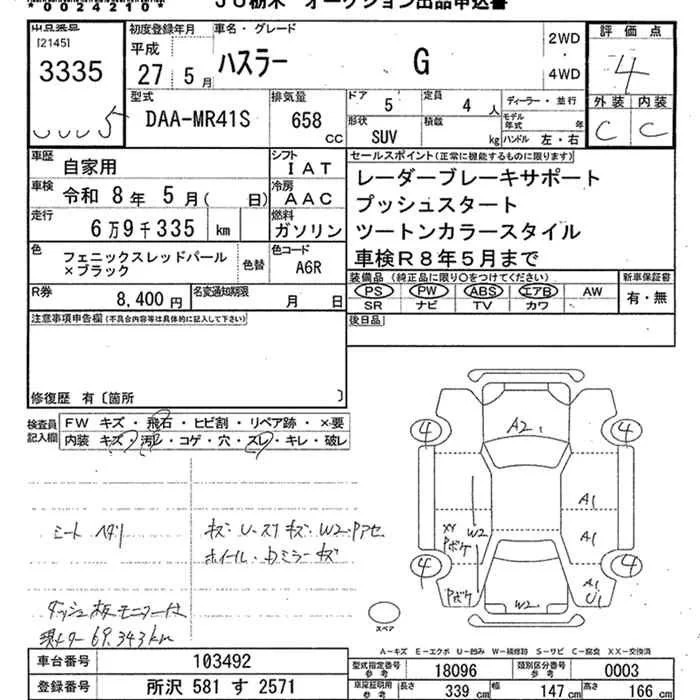 *0024210* JU栃木 オークション出品申込書
出品番号
[2145]
3335
初度登録年月
平成
27 5 月
車名・グレード
ハスラー G
2WD
4WD
評価点
4
外装 内装
C C
型式
DAA-MR41S
排気量
658
CC
ドア
5
定員
4 人
形状
SUV
積載
kg
ディーラー・並行
モデル年式 年
ハンドル 左・右
車歴
自家用
シフト
I A T
車検
令和 8 年 5 月( 日)
冷房
A A C
走行
6万9千335 km
燃料
ガソリン
色
フェニックスレッドパール
×ブラック
色替
色コード
A6R
R券
8,400 円
名変通知期限
月 日
セールスポイント(正常に機能するものに限ります)
レーダーブレーキサポート
プッシュスタート
ツートンカラースタイル
車検R8年5月まで
装備品 (純正品に限り○をつけてください)
PS PW ABS エアB AW
SR ナビ TV カワ
新車保証書
有・無
後日品
注意事項申告欄(不具合内容等は具体的に記入して下さい)
修復歴 有〔箇所 〕
検査員
記入欄
FW キズ・飛石・ヒビ割・リペア跡・×要
内装 キズ・汚レ・コゲ・穴・スレ・キレ・破レ
シート ヘタリ
キズ・U・スリキズ・W2・Pアセ
ホイール・カミラーキズ
ダッシュ板モニター付
現メター 69.343km
4
4
4
4
A2
A1
A1
A1
U1
W2
XY
Pボケ
Pボケ
W2
スペア
A-キズ E-エクボ U-凹み W-補修跡 S-サビ C-腐食 XX-交換済
車台番号
103492
登録番号
所沢 581 す 2571
型式指定番号
参考
18096
類別区分番号
参考
0003
車庫証明用
参考
長さ
339 cm
幅
147 cm
高さ
166 cm